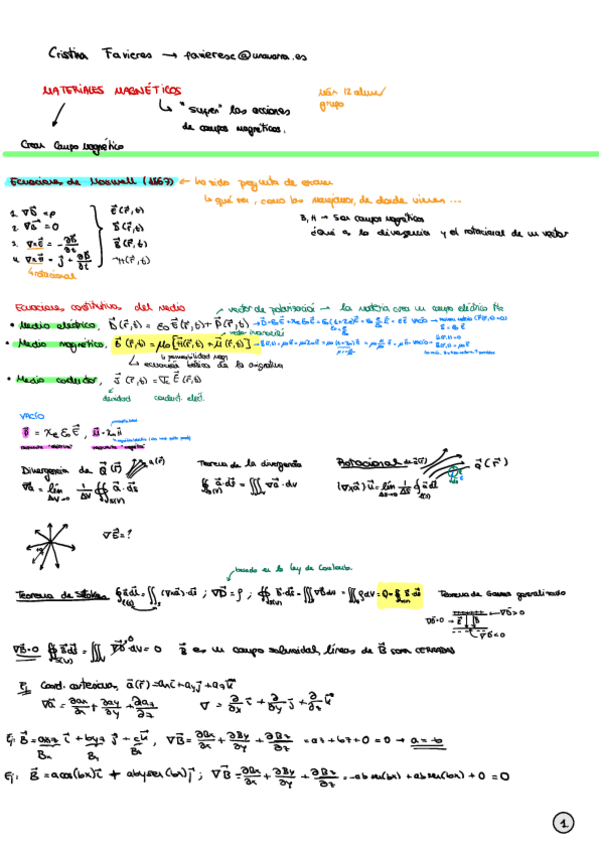 Cristina Favieres → favieresc@unavarra.es
MATERIALES MAGNÉTICOS
Máx 12 alum/
grupo
↳ "super" las acciones
de campos magnéticos.
Crear Campo magnético
Ecuaciones de Maxwell (1867) ← ha sido pregunta de examen
lo qué son, como las manejamos, de donde vienen ...
1. ∇D⃗ = ρ
2. ∇B⃗ = 0
3. ∇xE⃗ = -∂B⃗/∂t
4. ∇xH⃗ = J⃗ + ∂D⃗/∂t
↳ rotacional
E⃗(r⃗,t)
D⃗(r⃗,t)
B⃗(r⃗,t)
H(r⃗,t)
B, H → Son campos magnéticos
¿Qué es la divergencia y el rotacional de un vector
Ecuaciones constitutivas del medio
vector de polarización → la materia crea un campo eléctrico
• Medio eléctrico, D⃗(r⃗,t) = ε₀E⃗(r⃗,t) + P⃗(r⃗,t)
• Medio magnético, B⃗(r⃗,t) = μ₀[H⃗(r⃗,t) + M⃗(r⃗,t)]
↳ permeabilidad magn
↳ ecuación básica de la magnética
• Medio conductor, J⃗(r⃗,t) = σE⃗(r⃗,t)
densidad conduct. eléct.
VACÍO
Divergencia de a⃗(r⃗)
∇a⃗ = lím 1/ΔV ∯ a⃗·ds⃗
ΔV→0 S(V)
Teorema de la divergencia
∯ a⃗·ds⃗ = ∭ ∇a⃗·dv
S(V) V
Rotacional de a⃗(r⃗)
a⃗(r⃗)
(∇xa⃗)u⃗ = lím 1/ΔS ∮ a⃗dl
∇E⃗ = ?
basado en la ley de Coulomb.
Teorema de Stokes ∮a⃗dl = ∬(∇xa⃗)·ds ; ∇D⃗ = ρ ; ∯ D⃗·ds = ∭∇D⃗dv = ∭ρdv = Q
Teorema de Gauss generalizado
∇D=0
∇D>0
∇D<0
∇B=0 ∯ B⃗ds⃗ = ∭ ∇B⃗·dv = 0 B⃗ es un campo solenoidal, líneas de B⃗ son CERRADAS
Ej Coord. cartesianas, a⃗(r⃗) = axi⃗ + ayj⃗ + azk⃗
∇a⃗ = ∂ax/∂x + ∂ay/∂y + ∂az/∂z ∇ = ∂/∂x i⃗ + ∂/∂y j⃗ + ∂/∂z k⃗
Ej: B⃗ = axz i⃗ + byz j⃗ + ck⃗, ∇B⃗ = ∂Bx/∂x + ∂By/∂y + ∂Bz/∂z = az + bz + 0 = 0 → a = -b
Bx By Bz
Ej: B⃗ = a cos(bx)i⃗ + abysen(bx)j⃗ ; ∇B⃗ = ∂Bx/∂x + ∂By/∂y + ∂Bz/∂z = -absen(bx) + absen(bx) + 0 = 0
1